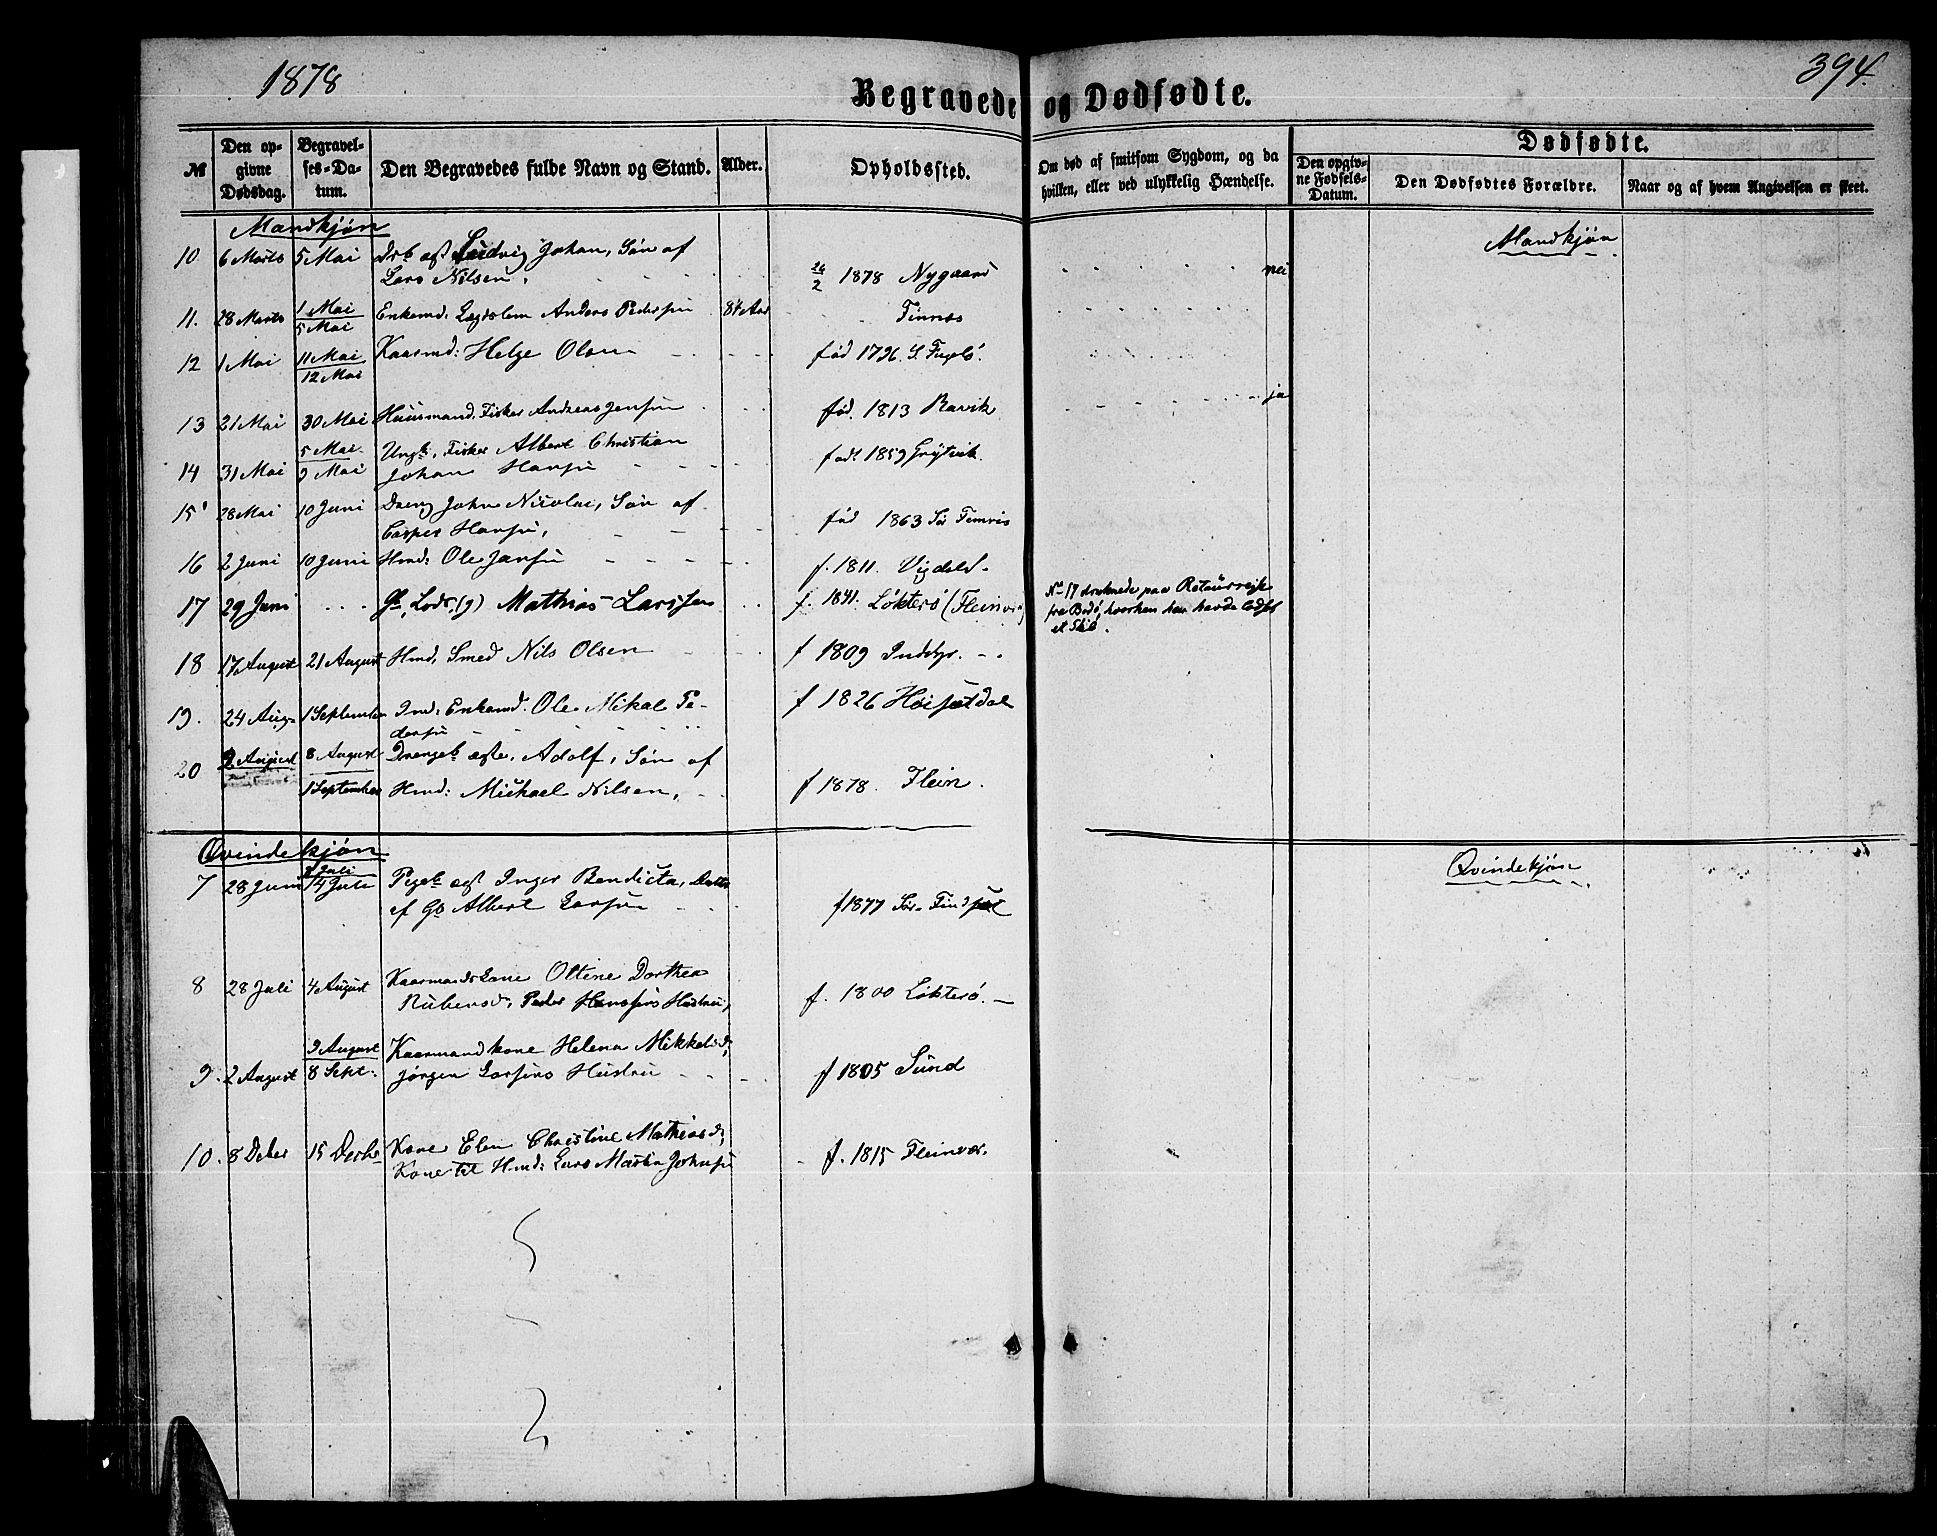 1878
394.
Begravede og Dødfødte.
№
Den opgivne Dødsdag.
Begravelses-Datum.
Den Begravedes fulde Navn og Stand.
Alder.
Opholdssted.
Om død af smitsom Sygdom, og da hvilken, eller ved ulykkelig Hændelse.
Dødfødte.
Den opgivne Fødsels-Datum.
Den Dødfødtes Forældre.
Naar og af hvem Angivelsen er skeet.
Mandkjøn
Mandkjøn
10 6 Marts 5 Mai Drb ægt Ludvig Johan, Søn af
Lars Nilsen, 1878 Nygaard nei
11. 28 Marts 1 Mai Enkemd: Lægdslem Anders Pedersen 84 Aar Finnæs
5 Mai
12 1 Mai 11 Mai Kaarmd: Helge Olsen født 1796. S. Fuglø.
12 Mai
13 21 Mai 30 Mai Huusmand. Fisker Andreas Jensen fød. 1813 Ravik ja
5 Mai. Ungk. Fisker Albert Christian
14 31 Mai 9 Mai Johan Hansen født 1859 Grytvik
15 28 Mai 10 Juni Dreng John Nicolai, Søn af
Casper Hansen, fød 1863 Sør
16 2 Juni 10 Juni Hmd: Ole Jansen f. 1811.
17 29 Juni Gb. Lods, (g) Mathias Larssen f. 1841. Løkterø (Fleinvær)
No 17 druknede paa Retourreise
fra Bodø, hvorhen han havde lodset
et Skib.
18 17 August 21 August Hmd. Smed Nils Olsen f 1809 Inddyr.
19. 24 Aug. 1 September Ind: Enkemd. Ole Mikal Pe-
dersen f 1826 Høisætdal
20 2 August 8 August Drengeb. ægte. Adolf, Søn af
1 September Hmd: Michael Nilsen, f 1878. Flein.
Qvindekjøn
Qvindekjøn
7 Juli
7 28 Juni 14 Juli Pigeb ægt Inger Bendicta, Datter
af Gb Albert Larsen f 1877 Sør-
8 28 Juli 4 August Kaarmandskone Ottine Dorthea
Rubensd. Peder Hanssens Hustru, f. 1800 Løkterø.
9 August Kaarmandkone Helena Mikkelsd,
9. 2 August 8 Sept. Jørgen Larsens Hustru f 1805 Sund
10. 8 Dcber 15 Decbr Kone Elen Christine Mathiasd,
Kone til Hmd: Lars Martin Johnsen f. 1815 Fleinvær.